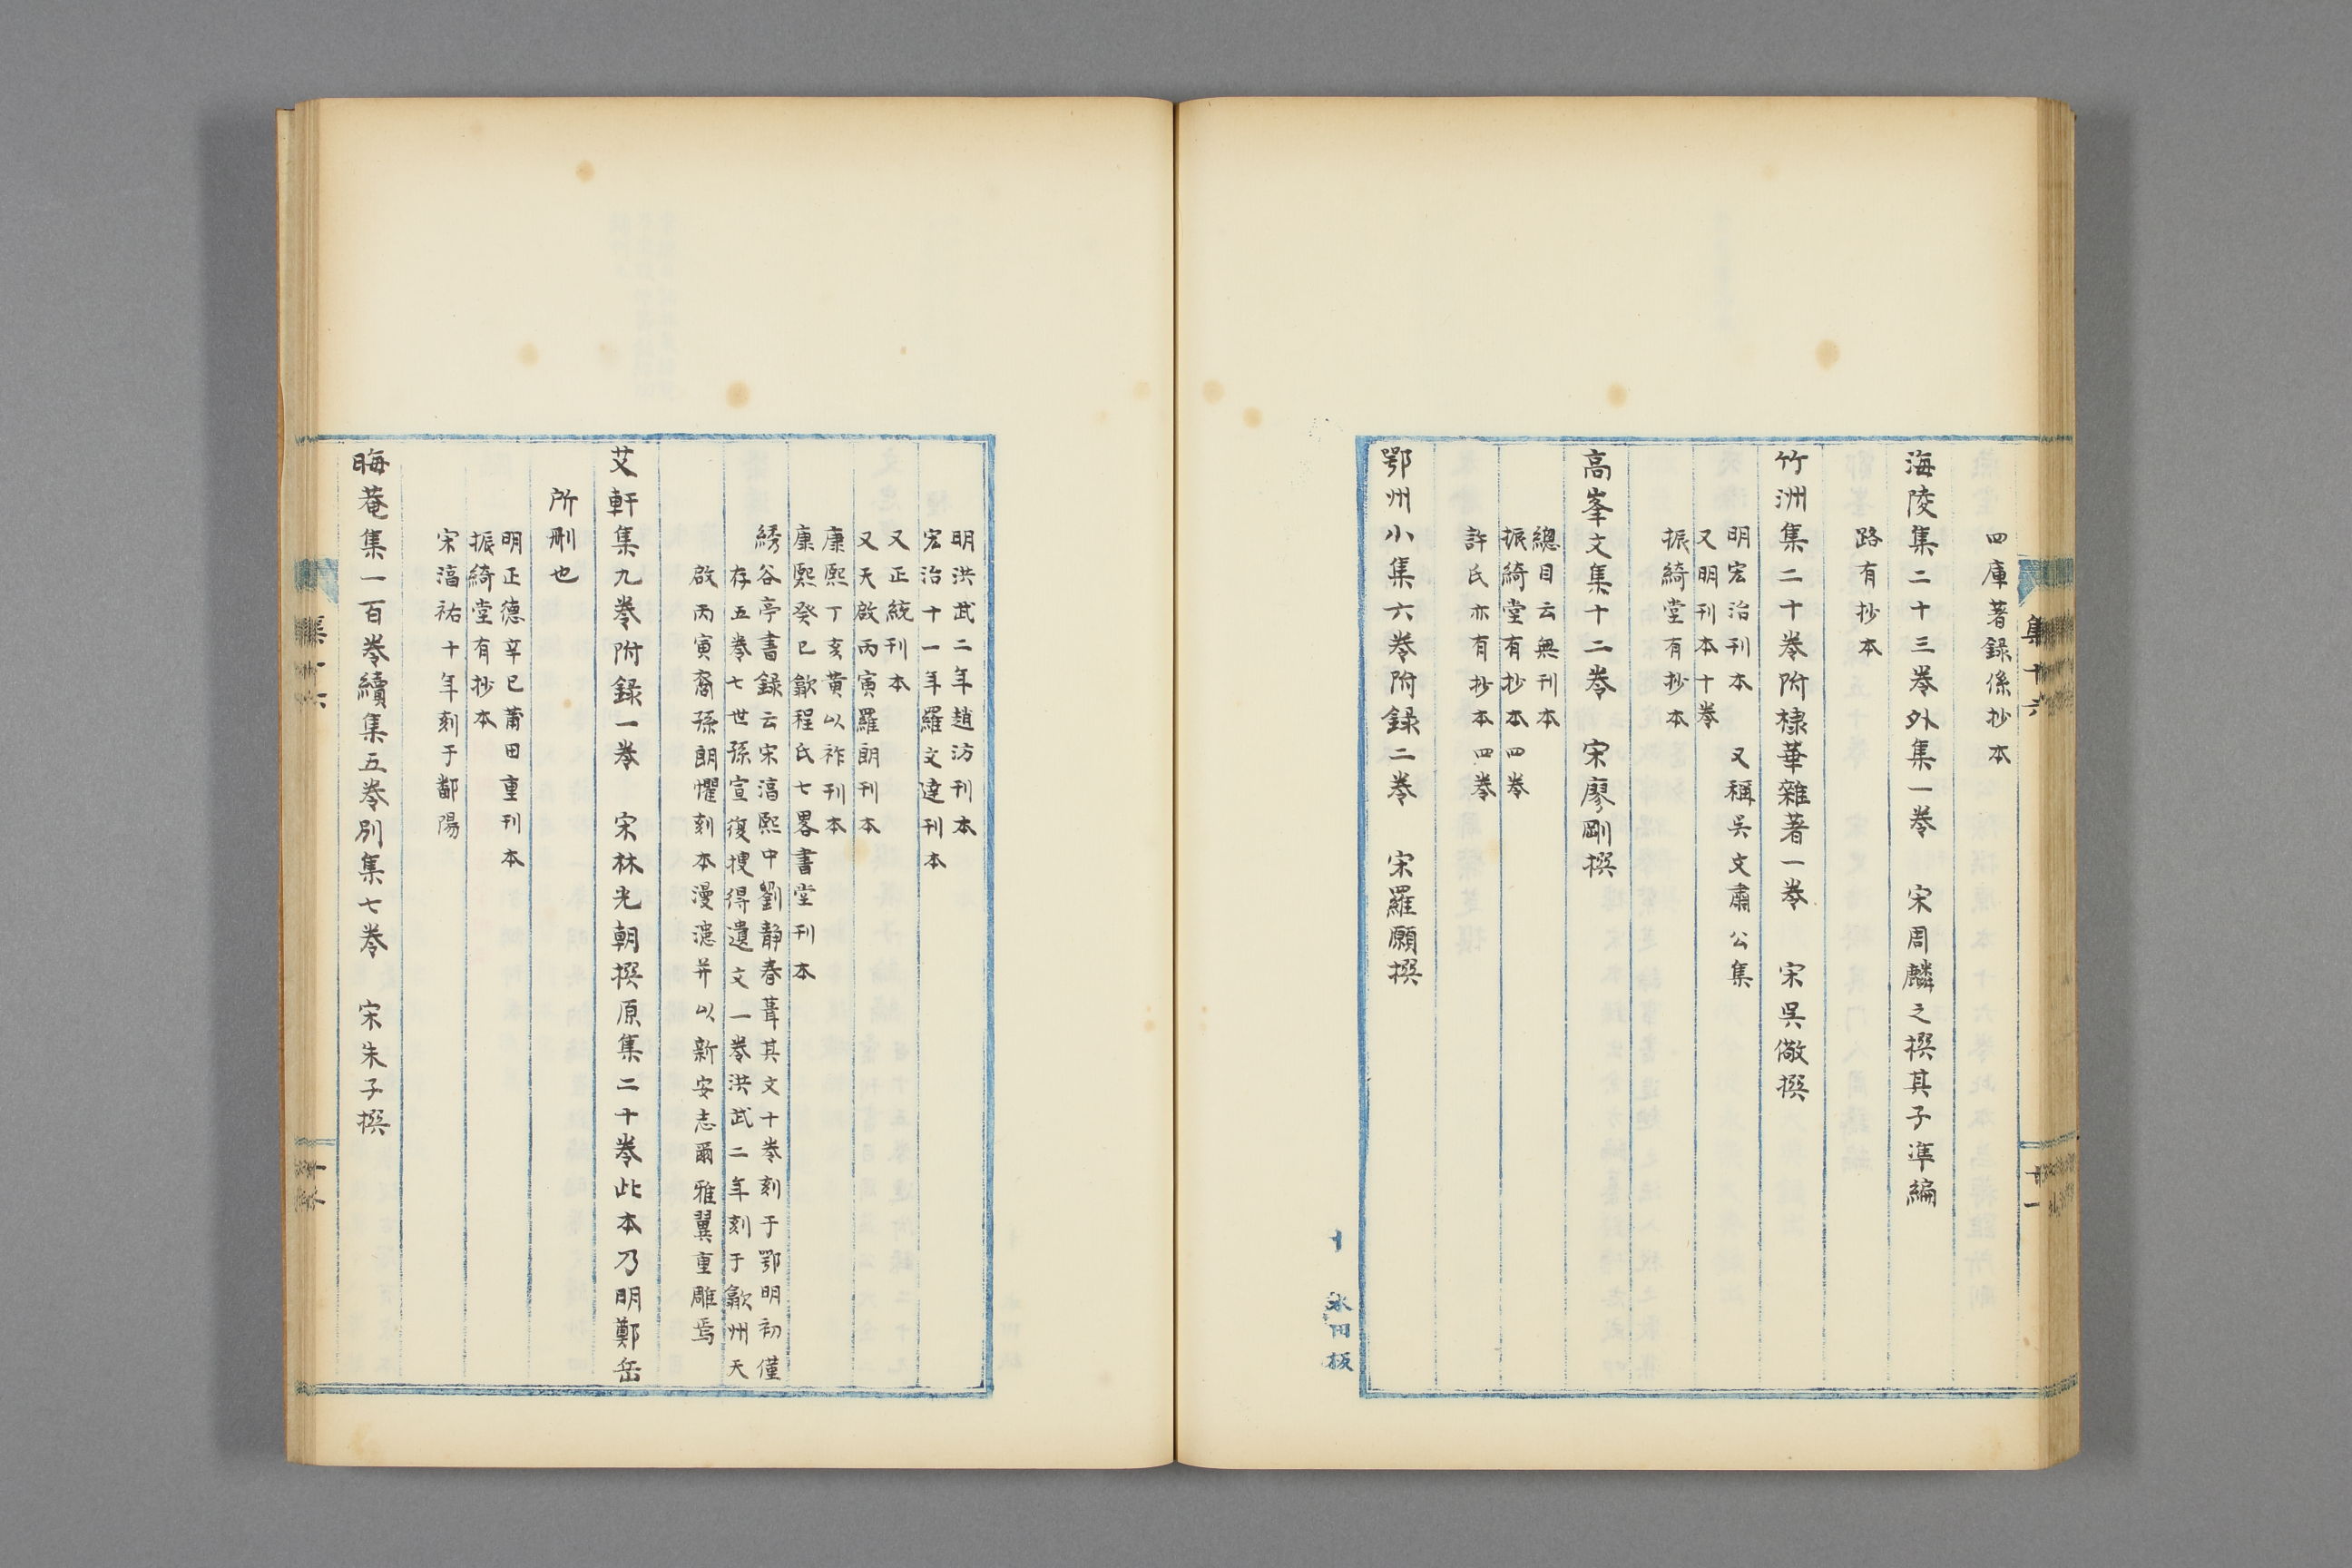 四庫著録係抄本
海陵集二十三卷外集一卷　宋周麟之撰其子準編
路有抄本
竹洲集二十卷附棣華雜著一卷　宋吳儆撰
明宏治刊本　又稱吳文肅公集
又明刊本十卷
振綺堂有抄本
高峯文集十二卷　宋廖剛撰
總目云無刊本
振綺堂有抄本四卷
許氏亦有抄本四卷
鄂州小集六卷附録二卷　宋羅願撰
明洪武二年趙汸刊本
宏治十一年羅文達刊本
又正統刊本
又天啟丙寅羅朗刊本
康熙丁亥黄以祚刊本
康熙癸巳歙程氏七畧書堂刊本
綉谷亭書録云宋湻熙中劉静春葺其文十卷刻于鄂明初僅
存五卷七世孫宣復捜得遺文一卷洪武二年刻于歙州天
啟丙寅裔孫朗懼刻本漫漶并以新安志爾雅翼重雕焉
艾軒集九卷附録一卷　宋林光朝撰原集二十卷此本乃明鄭岳
所刪也
明正德辛巳莆田重刊本
振綺堂有抄本
宋湻祐十年刻于鄱陽
晦菴集一百卷續集五卷別集七卷　宋朱子撰
集十六
十一